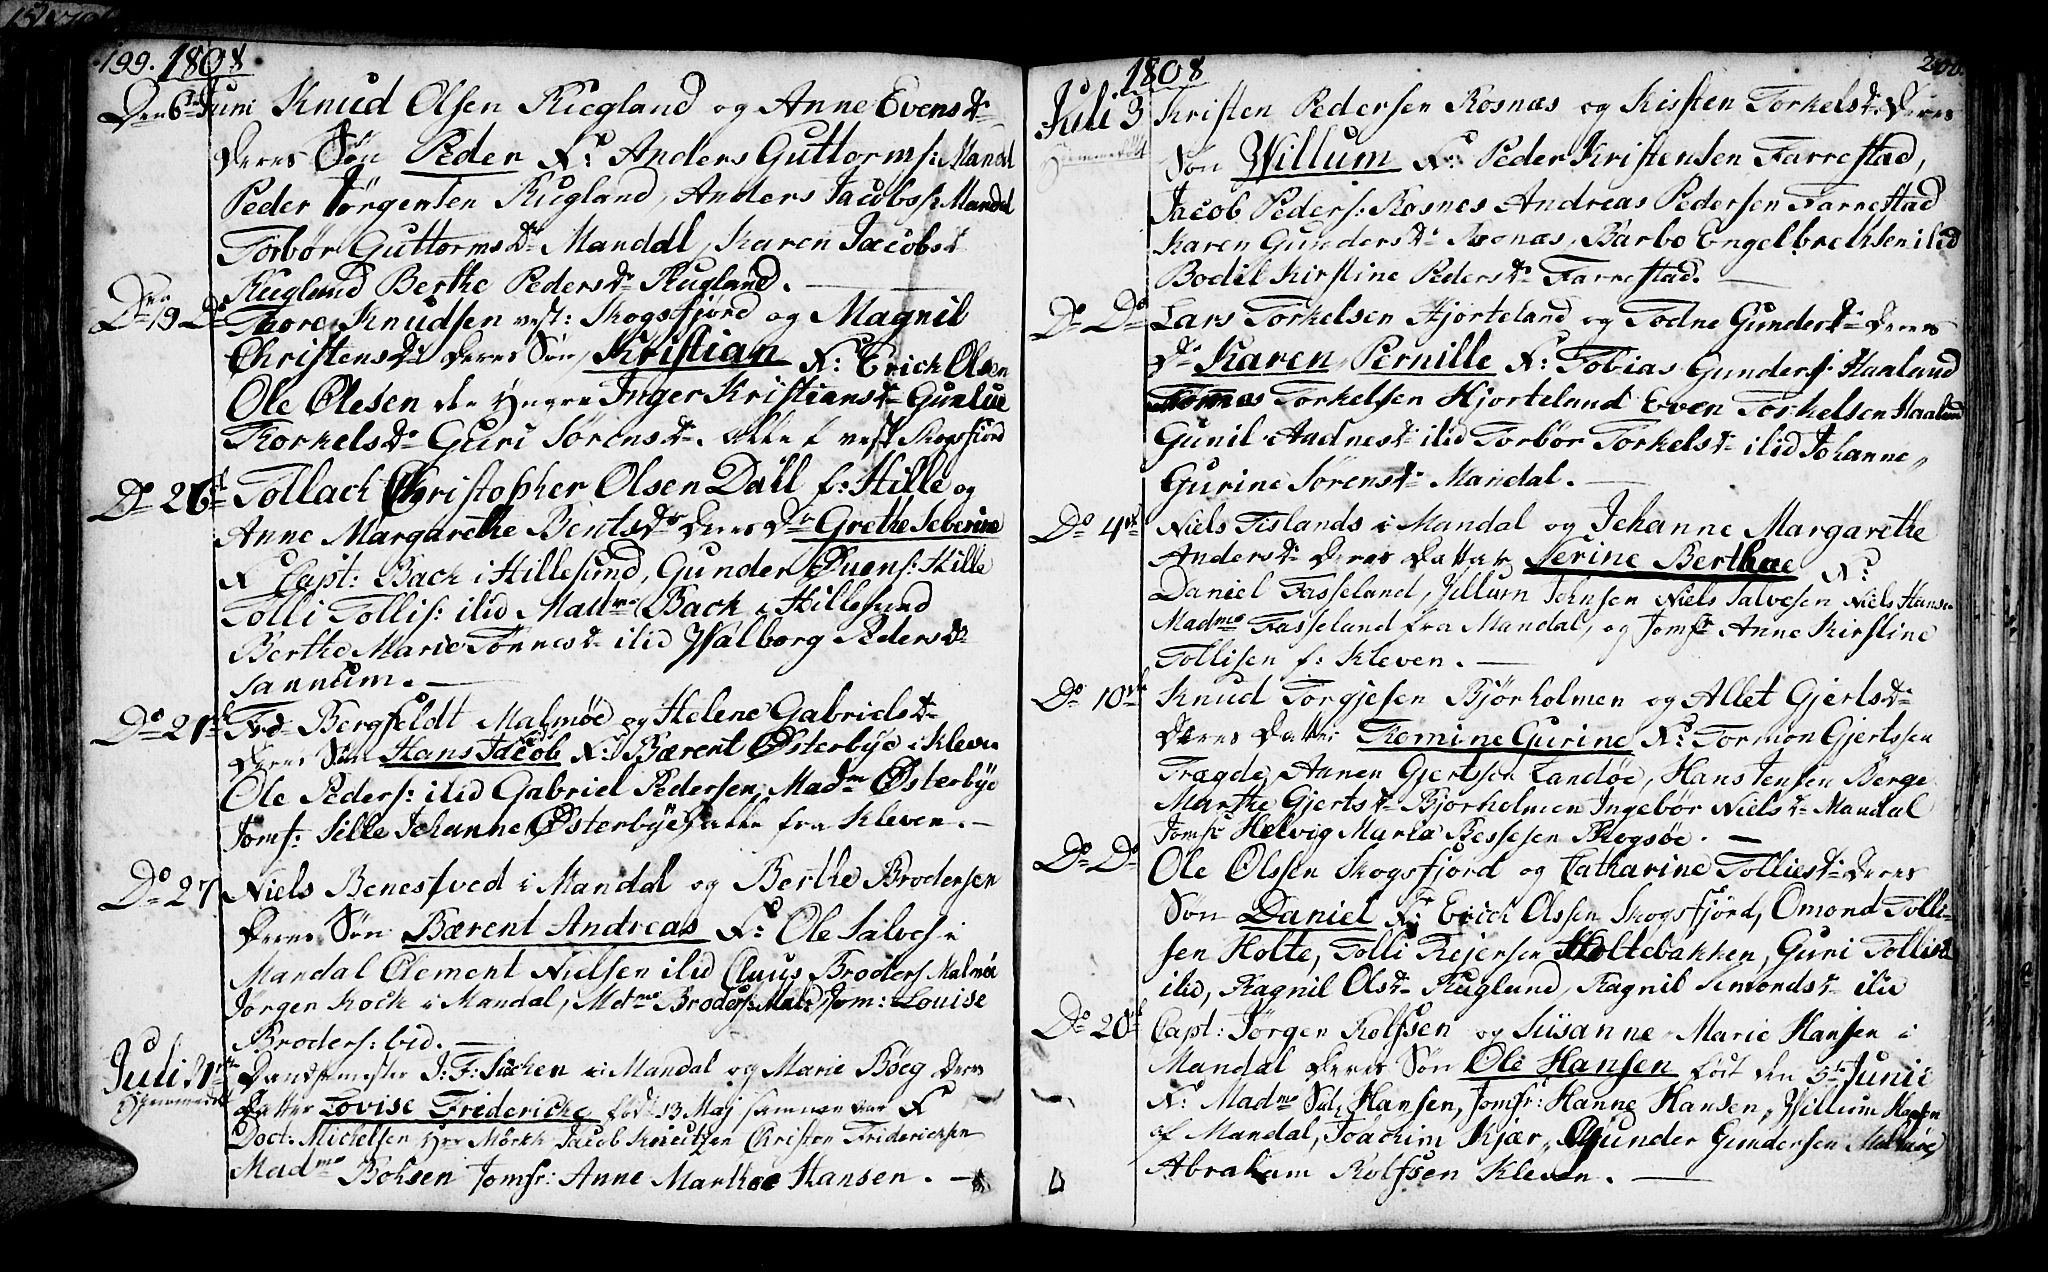 199. 1808
Den 6te Juni Knud Olsen Rugland og Anne Evensdr
deres Søn Peder Fr: Anders Guttorms: Mandal
Peder Jørgensen Rugland, Anders Jacobss: Mandal
Torbør Guttormsdr Mandal, Karen Jacobsdr
Rugland Berthe Pedersdr Rugland. —
Den
Do 19 Do Thore Knudsen vest: Skogsfjord og Magnil
Christensdr deres Søn Kristian Fr: Erich Olsen
Ole Olesen den yngre Inger Kristiansdr Gunlue
Torkelsdr Guri Sørensdr alle f vest Skogsfjord
Do 26d Tollach Christopher Olsen Dall f: Hille og
Anne Margarethe Bentsdr deres Dr Grethe Severine
Fr Capt: Back i Hillesund, Gunder Evens: Hille
Tolli Tollis: ibid Madme Back i Hillesund
Berthe Marie Tønnesdr ibid Walborg Pedersdr
Sannum. —
Do 27de Frd Bergfeldt Malmøe og Helene Gabrielsdr
deres Søn Hans Jacob Fr: Bærent Østerbye i Kleven
Ole Peders: ibid Gabriel Pedersen, Madme Østerbye
Jomf: Sille Johanne Østerbye alle fra Kleven. —
Do 27 Niels Benestved i Mandal og Berthe Brodersen
deres Søn Bærent Andreas Fr: Ole Salves: i
Mandal Clement Nielsen ibid Claus Broders: Malmøe
Jørgen Kock i Mandal, Madme Broders: Mald Jom: Louise
Broders: ibid. —
Juli Dandsemester J: F: Sachen i Mandal og Marie Bøeg deres
Hjemmedøbt Datter Lovise Fridericke født 13 Maj samme aar Fr
Doct: Michelsen Hr Mørch Jacob Knudtzen Christen Friderichsen
Madme Bohsen Jomfr: Anne Marthee Hansen. —
1808 200.
Juli 3 Kristen Pedersen Rosnæs og Kisten Torkelsdr deres
Hjemmedøbt Søn Willum Fr: Peder Kristensen Farrestad,
Jacob Peders: Rosnes Andreas Pedersen Farrestad
Karen Gundersdr Rosnæs, Barbo Engelbrecksen ibid
Bodil Kirstine Pedersdr Farrestad. —
Do Do Lars Torkelsen Hjorteland og Todne Gundersdr deres
Dr Karen Pernille Fr: Tobias Gunders: Haaland
Tomas Torkelsen Hjorteland Even Torkelsen Haaland
Gunil Aadnesdr ibid Torbør Torkelsdr ibid Johanne
Gurine Sørensdr Mandal. —
Do 4de Niels Tislands i Mandal og Johanne Margarethe
Andersdr deres Datter Serine Berthae Fr
Daniel Fasseland, Willum Johnsen Niels Salvesen Niels Hansen
Madme Fasseland fra Mandal, og Jomfr Anne Kirstine
Tollisen f: Kleven. —
Do 10de Knud Torgjesen Bjørholmen og Allet Gjertsdr
deres Datter Temine Gurine Fr: Tormon Gjertssen
Tregde, Aanen Gjertssen Landøe, Hans Jensen Berge
Marthe Gjertsdr Bjorholmen Ingebør Nielsdr Mandal
Jomfr Helvig Maria Bessesen Risøe. —
Do Do Ole Olssen Skogsfjord og Catharine Tolliesdr deres
Søn Daniel Fr: Erich Olssen Skogsfjord, Omond Tolli-
sen Holte, Tolli Rejersen Holtebakken, Guri Tollisdr
ibid, Ragnil Olsdr Rugland, Ragnil Amondsdr ibid
Do 20de Capt: Jørgen Rolfsen og Susanne Marie Hansen i
Mandal deres Søn Ole Hansen født den 5te Junii
Fr: Madme Sal: Hansen, Jomfr: Hanne Hansen, Willum Hansen
af Mandal, Joachim Kjær, Gunder Gundersen Malmøe,
Abraham Rolfsen Kleven. —